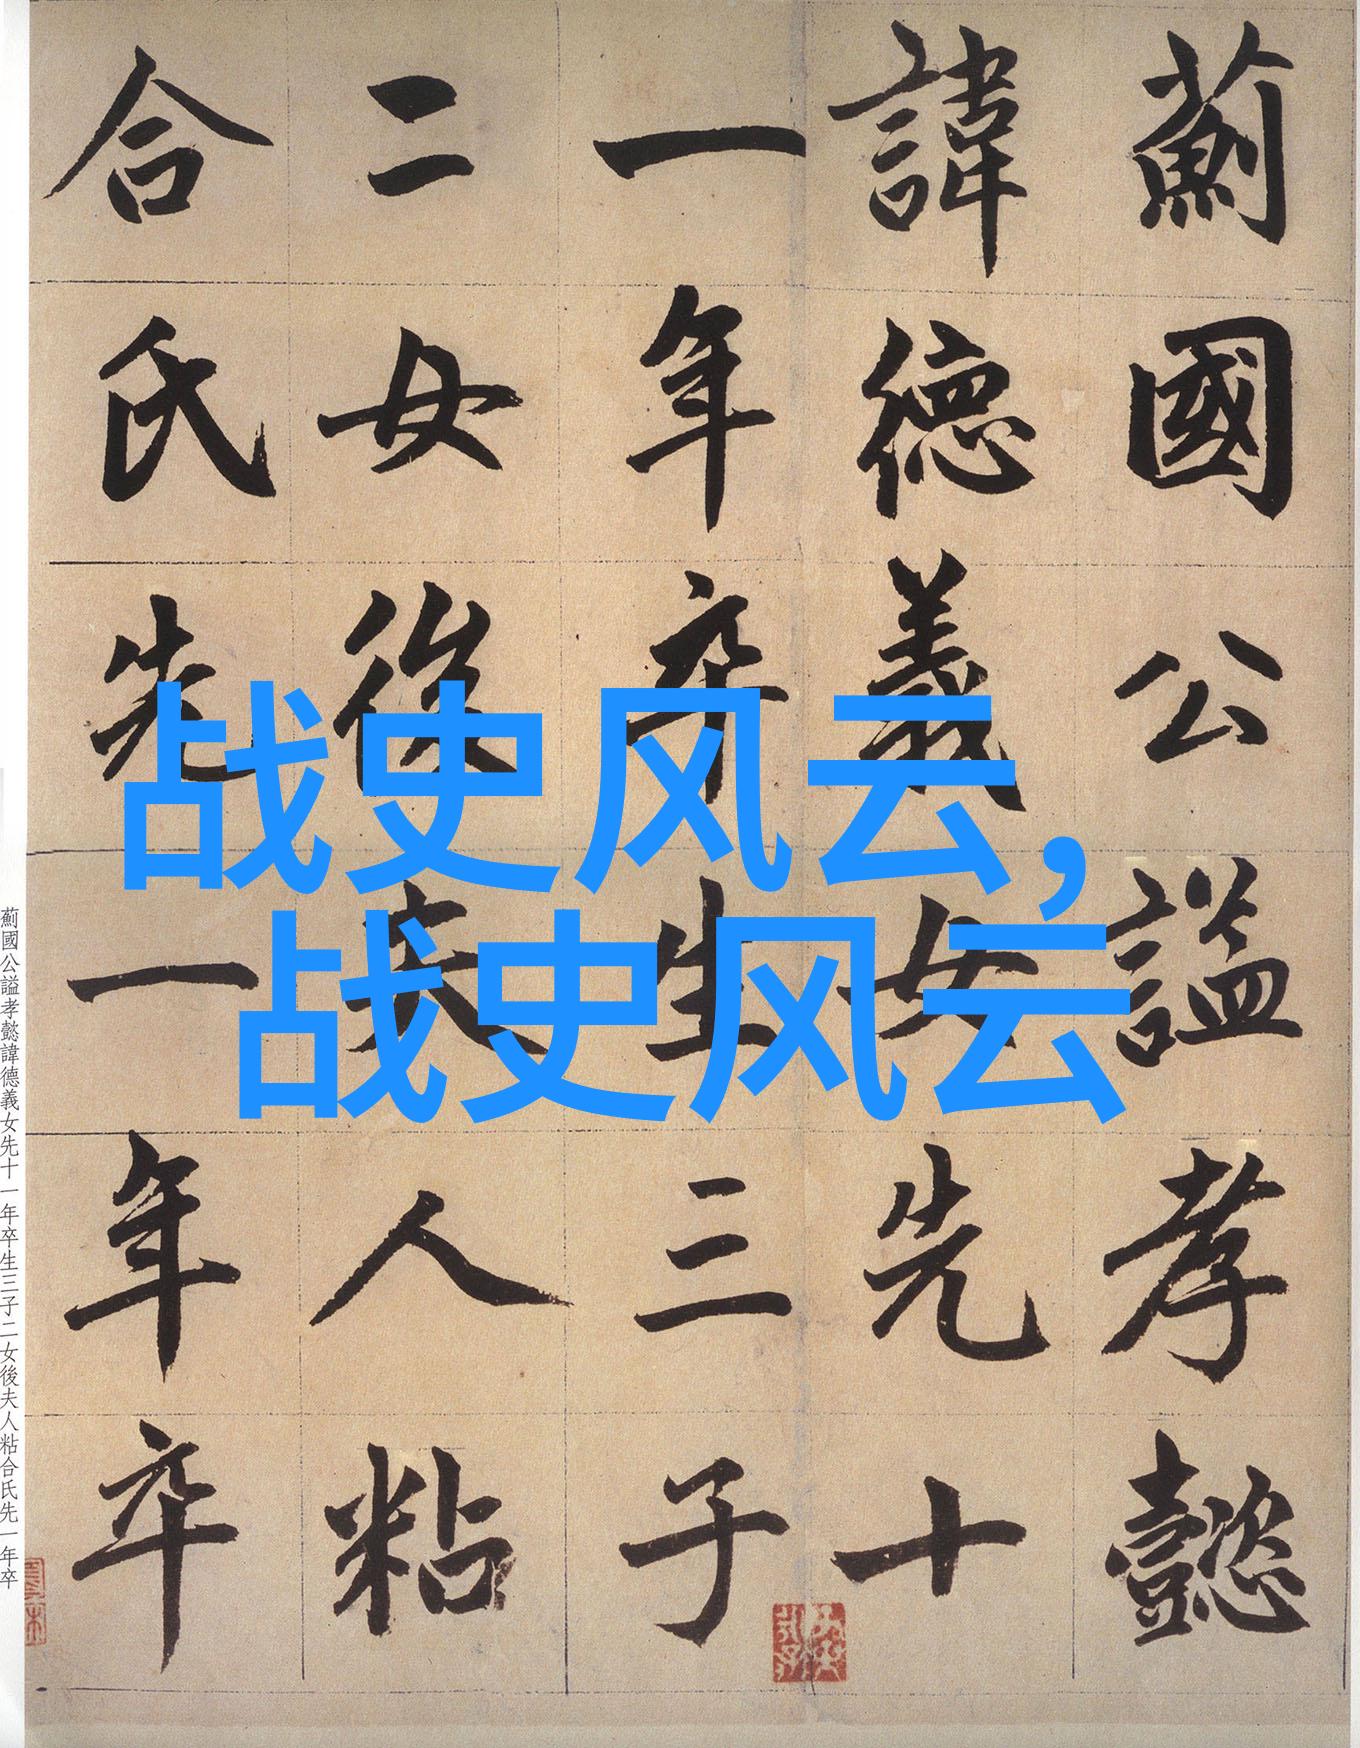 薊國公謚孝懿
諱德義女先十
一年卒生三子
二女後夫人粘
合氏先一年卒
战史风云,
战史风云
薊國公謚孝懿諱德義女先十一年卒生三子二女後夫人粘合氏先一年卒